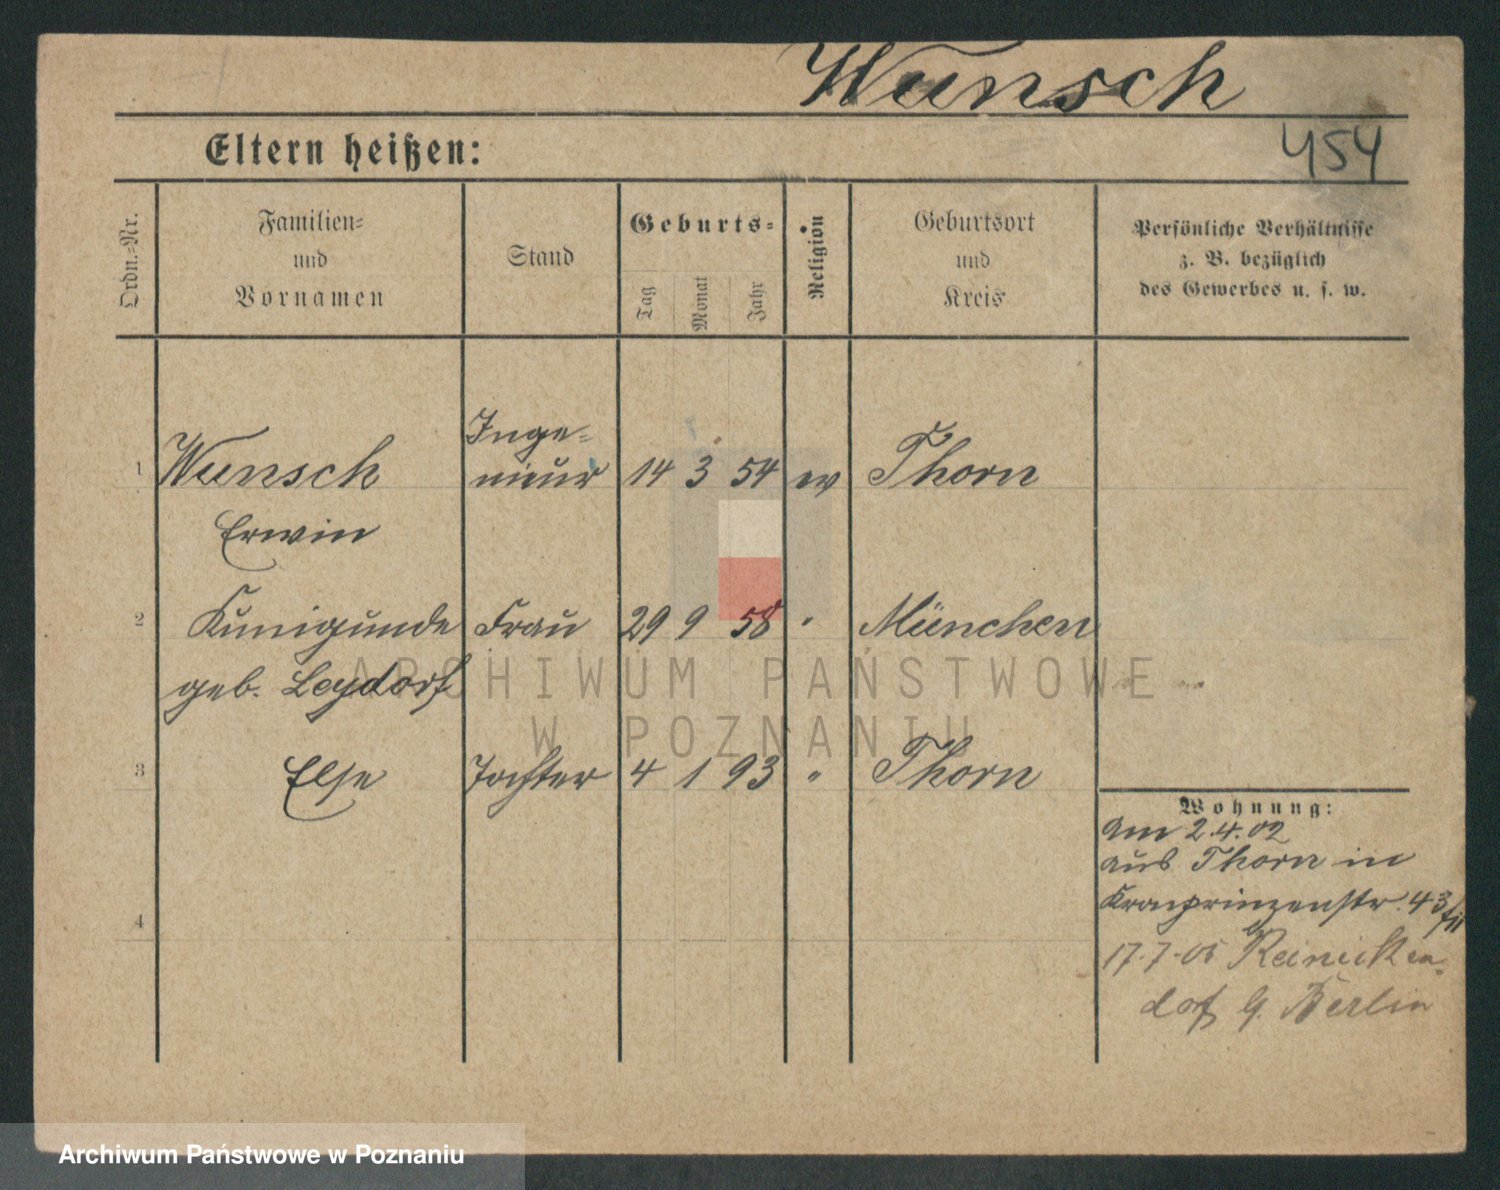 Wunsch
Eltern heißen:
454
Ordn.-Nr.
Familien-
und
Vornamen
Stand
Geburts-
Tag
Monat
Jahr
Religion
Geburtsort
und
Kreis
Persönliche Verhältnisse
z. B. bezüglich
des Gewerbes u. s. w.
Inge-
1 Wunsch nieur 14 3 54 ev Thorn
Erwin
2 Kunigunde Frau 29 9 58 " München
geb. Leydorf
ARCHIWUM PAŃSTWOWE
W POZNANIU
3 Else Tochter 4 1 93 " Thorn
4
Wohnung:
Am 2.4.02
aus Thorn in
Kronprinzenstr. 43
17.7.05 Reinicken-
dorf b. Berlin
Archiwum Państwowe w Poznaniu